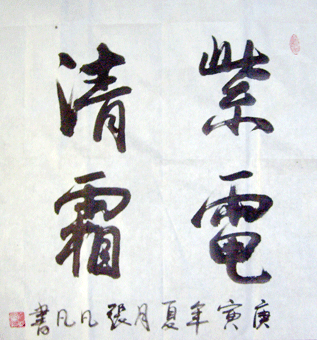 紫電
清霜
庚寅年夏月張凡凡書